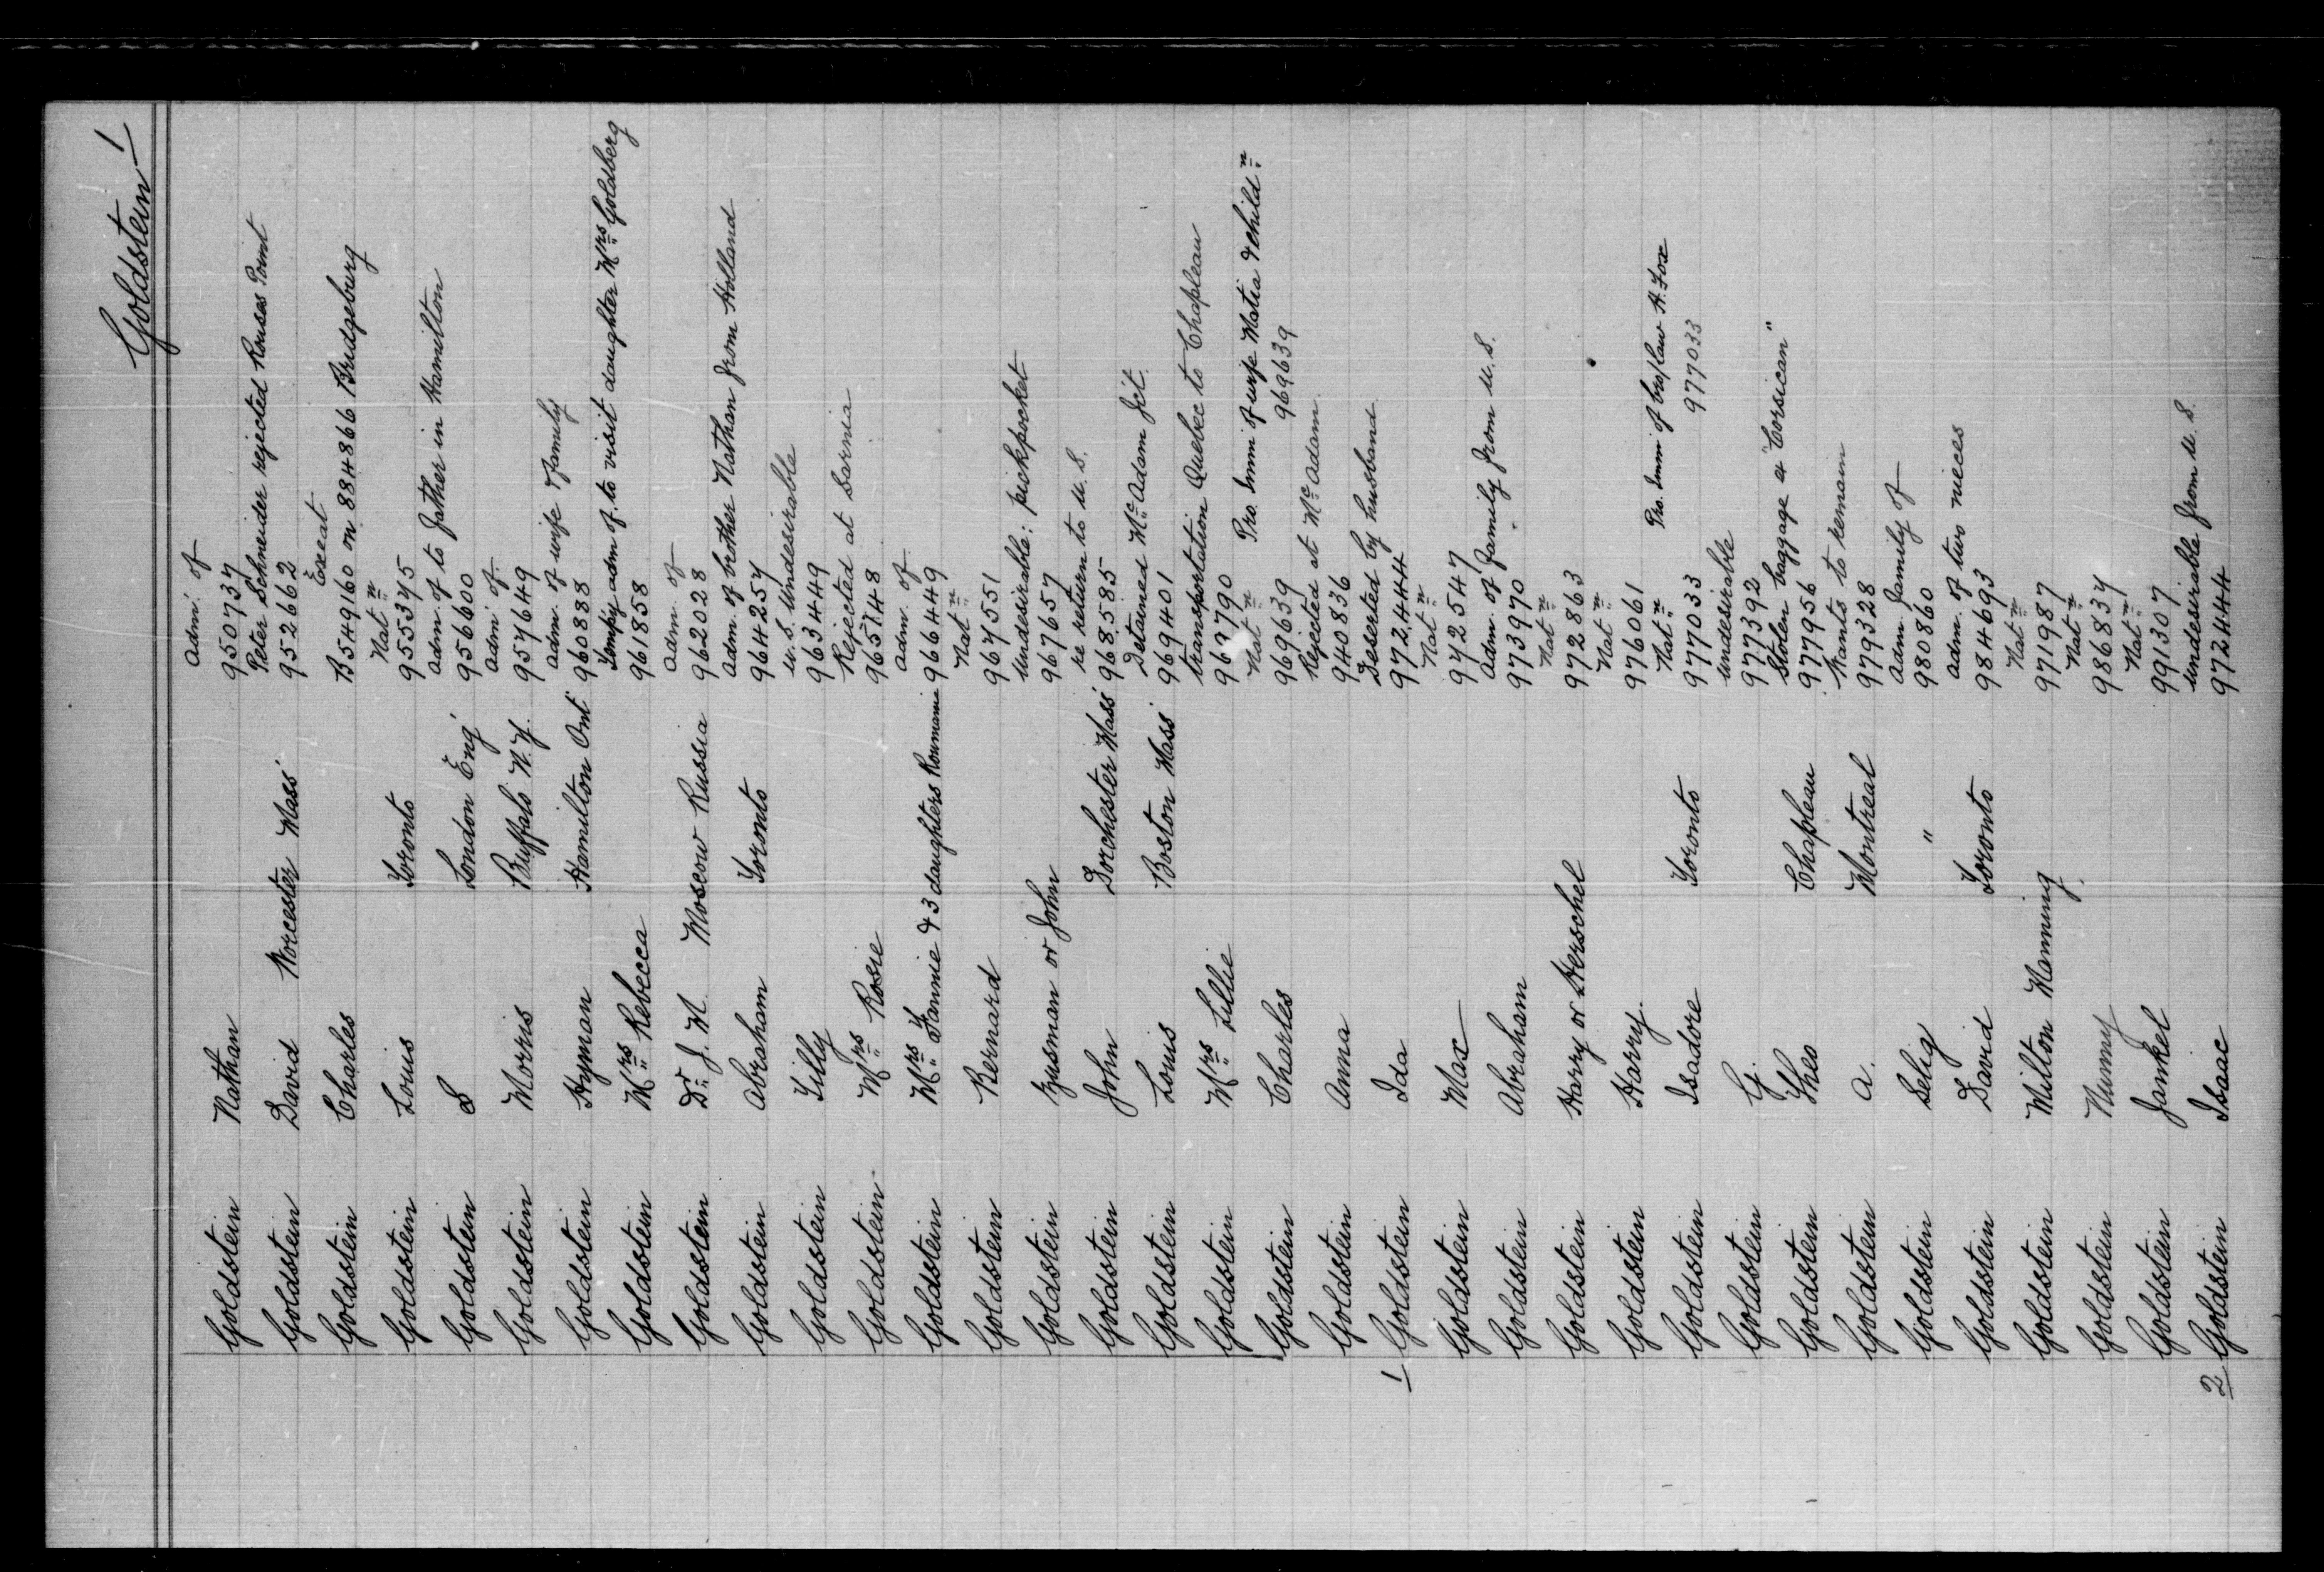 Goldstein 1
adm. of
Goldstein Nathan 950737
Peter Schneider rejected Rouses Point
Goldstein David Worcester Mass 952662
Exeat
Goldstein Charles B549160 on 884866 Bridgeburg
Nat n
Goldstein Louis Toronto 955375
adm. of to father in Hamilton
Goldstein S London Eng 956600
adm. of
Goldstein Morris Buffalo N.Y. 957649
adm. of wife & family
Goldstein Hyman Hamilton Ont 960888
Temp'y adm. of. to visit daughter Mrs Goldberg
Goldstein Mrs Rebecca 961858
adm. of
Goldstein Dr J. M. Moscow Russia 962028
adm. of brother Nathan from Holland
Goldstein Abraham Toronto 964257
U.S. Undesirable
Goldstein Tilly 963449
Rejected at Sarnia
Goldstein Mrs Rosie 965748
adm. of
Goldstein Mrs Fannie & 3 daughters Roumani 966449
Nat n
Goldstein Bernard 967551
Undesirable: pickpocket
Goldstein Zusman or John 967657
re return to U.S.
Goldstein John Dorchester Mass 968585
Detained McAdam Jct.
Goldstein Louis Boston Mass 969401
transportation Quebec to Chapleau
Goldstein Mrs Lillie 969790
Nat n Pro. Imm of wife Matia & child n
Goldstein Charles 969639 969639
Rejected at McAdam
Goldstein Anna 940836
Deserted by husband
1 Goldstein Ida 972444
Nat n
Goldstein Max 972547
adm. of family from U.S.
Goldstein Abraham 973970
Nat n
Goldstein Harry or Herschel 972863
Nat n
Goldstein Harry 976061
Nat n Pro. Imm of bro/law H. Fox
Goldstein Isadore Toronto 977033 977033
undesirable
Goldstein G. 977392
Stolen baggage ex "Corsican"
Goldstein Theo Chapleau 977956
Wants to remain
Goldstein A. Montreal 979328
adm. family of
Goldstein Selig " 980860
adm. of two nieces
Goldstein David Toronto 984693
Nat n
Goldstein Milton Manning 971987
Nat n
Goldstein Nunny 986837
Nat n
Goldstein Jankel 991307
undesirable from U.S.
2 Goldstein Isaac 972444